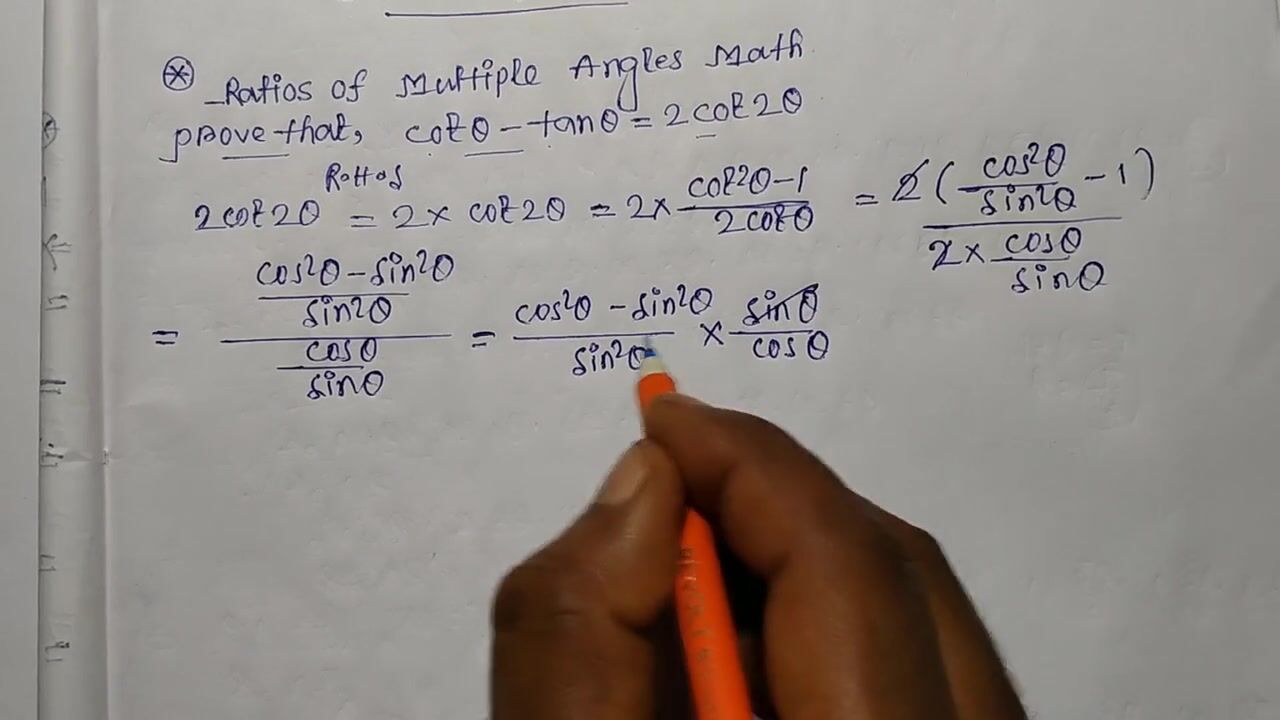 ⊛ Ratios of Multiple Angles Math
prove that, cotθ - tanθ = 2cot2θ
2cot2θ = 2 × cot2θ = 2 × (cot²θ - 1)/(2cotθ) = 2(cos²θ/sin²θ - 1)/(2 × cosθ/sinθ)
= ((cos²θ - sin²θ)/sin²θ)/(cosθ/sinθ) = (cos²θ - sin²θ)/sin²θ × sinθ/cosθ